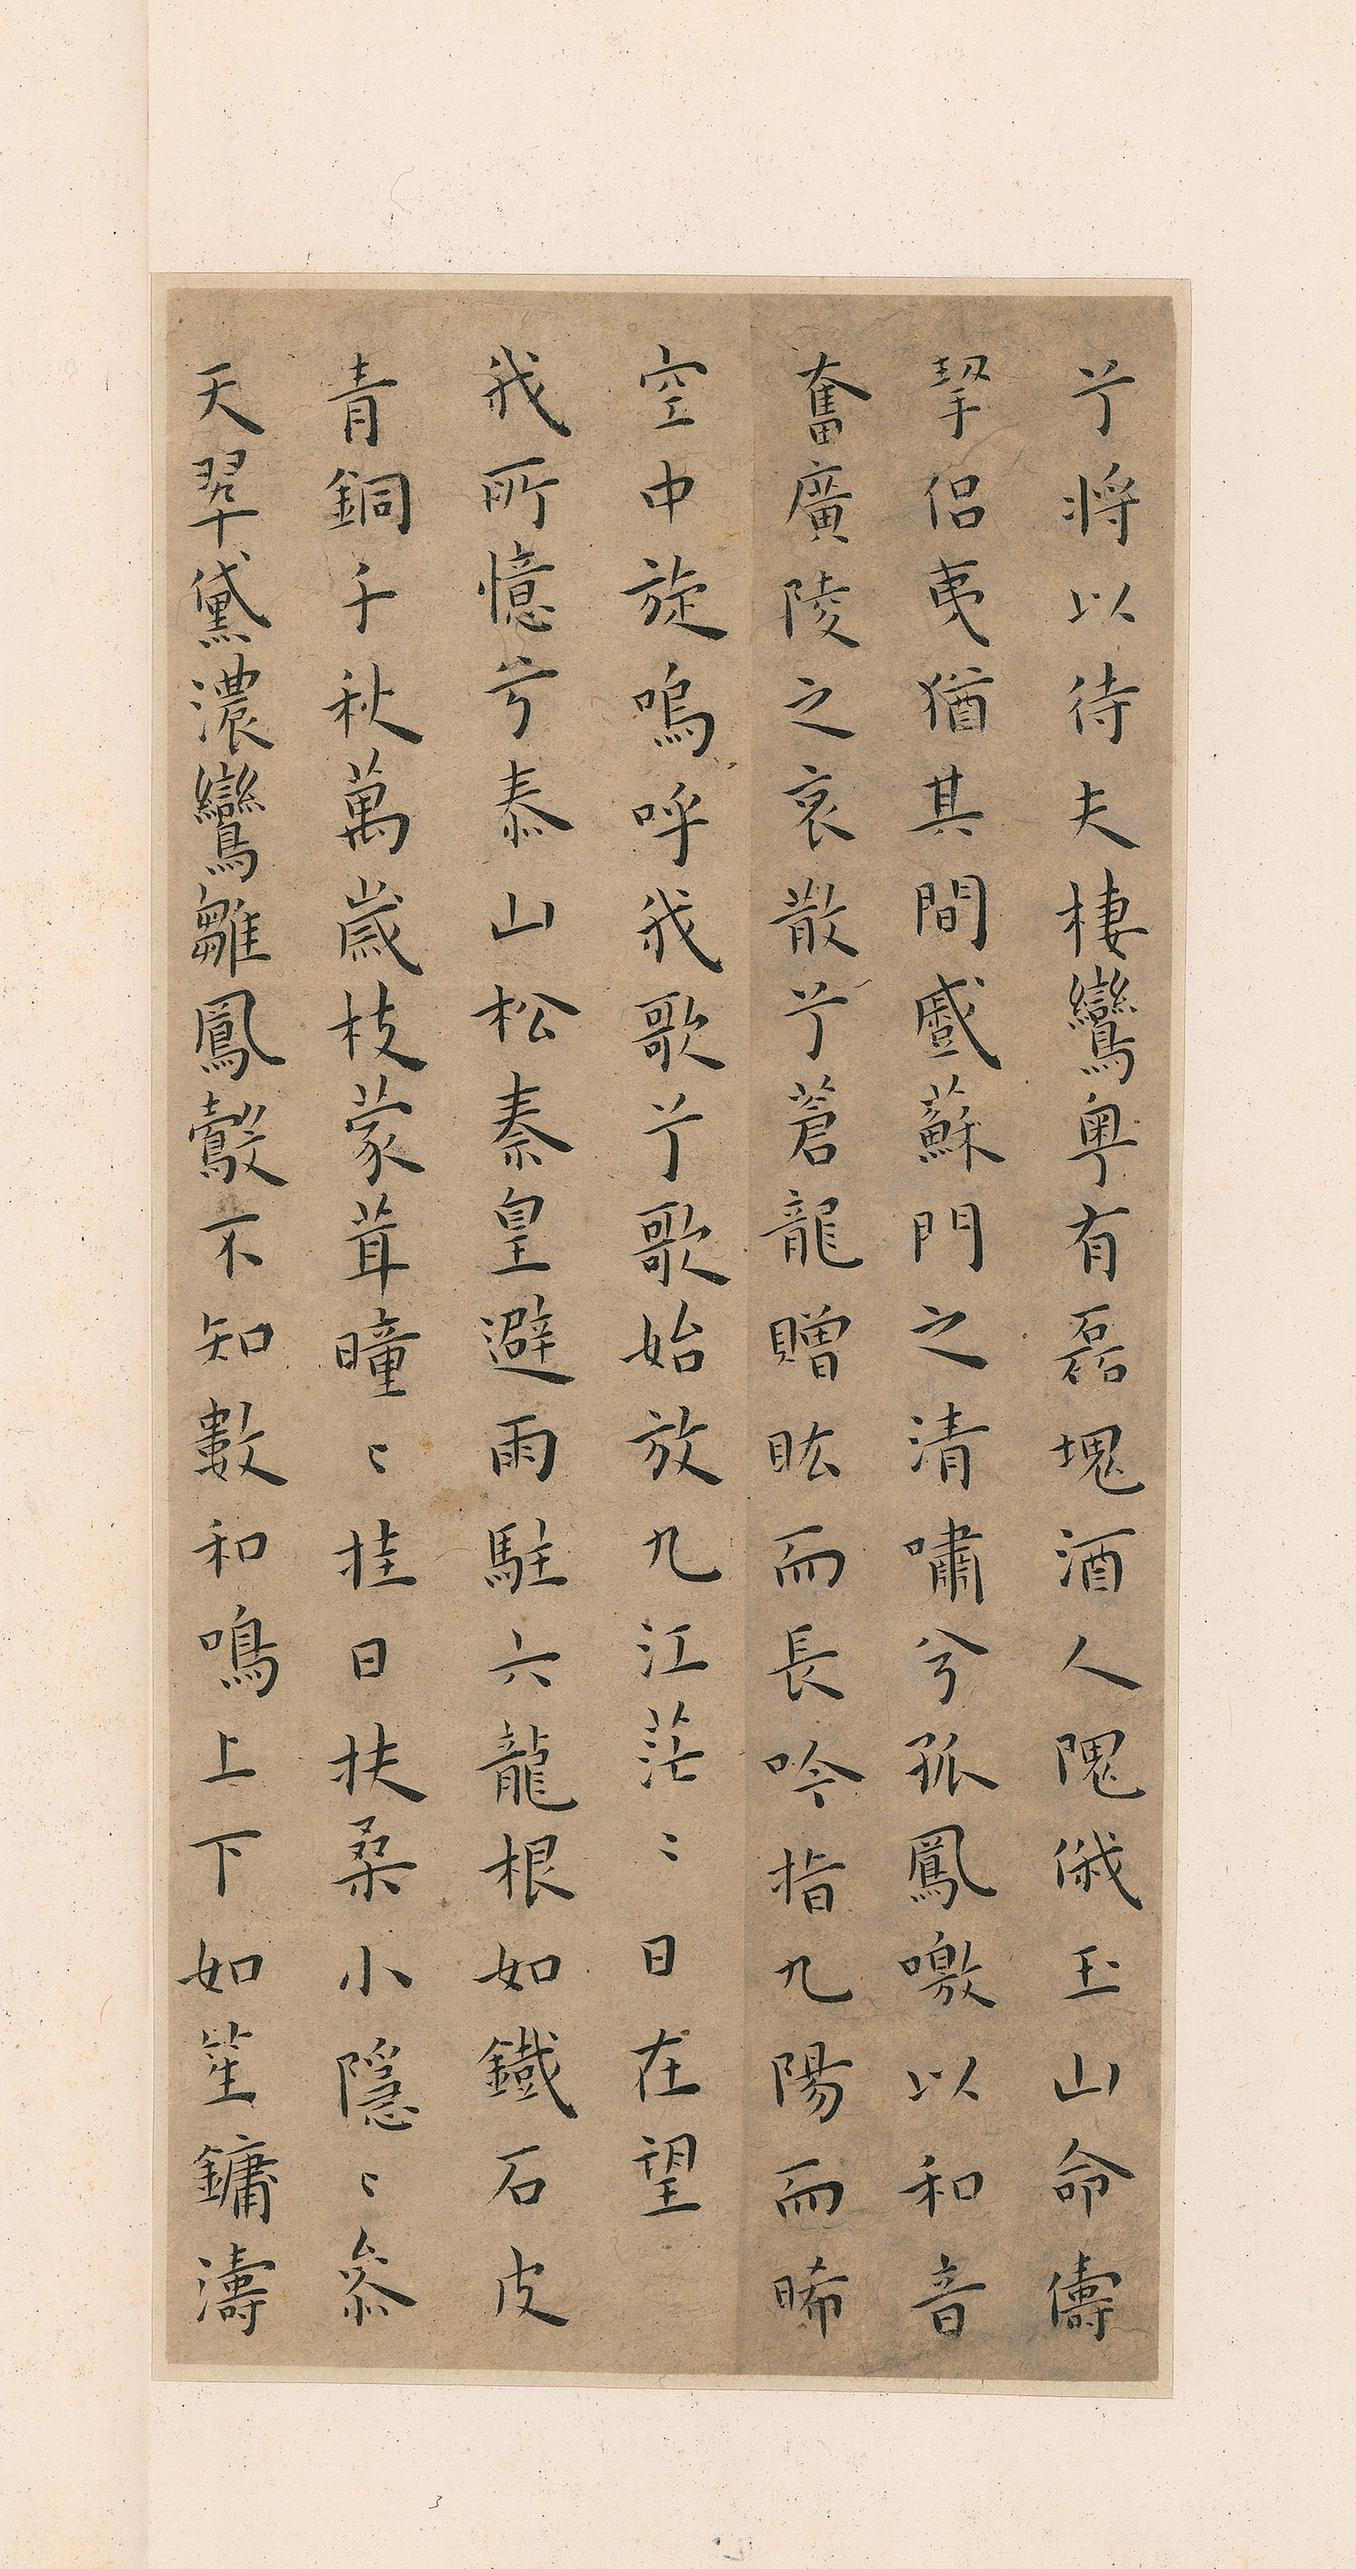 兮將以待夫棲鸞粤有磊塊酒人隗俄玉山命儔
挈侶夷猶其間戲蘇門之清嘯兮孤鳳噭以和音
奮廣陵之哀散兮蒼龍贈眩而長吟指九陽而晞
空中旋嗚呼我歌兮歌始放九江茫〻日在望
我所憶兮泰山松秦皇避雨駐六龍根如鐵石皮
青銅千秋萬歲枝蒙茸曈〻挂日扶桑小隱〻參
天翠黛濃鸞雛鳳鷇不知數和鳴上下如笙鏞濤